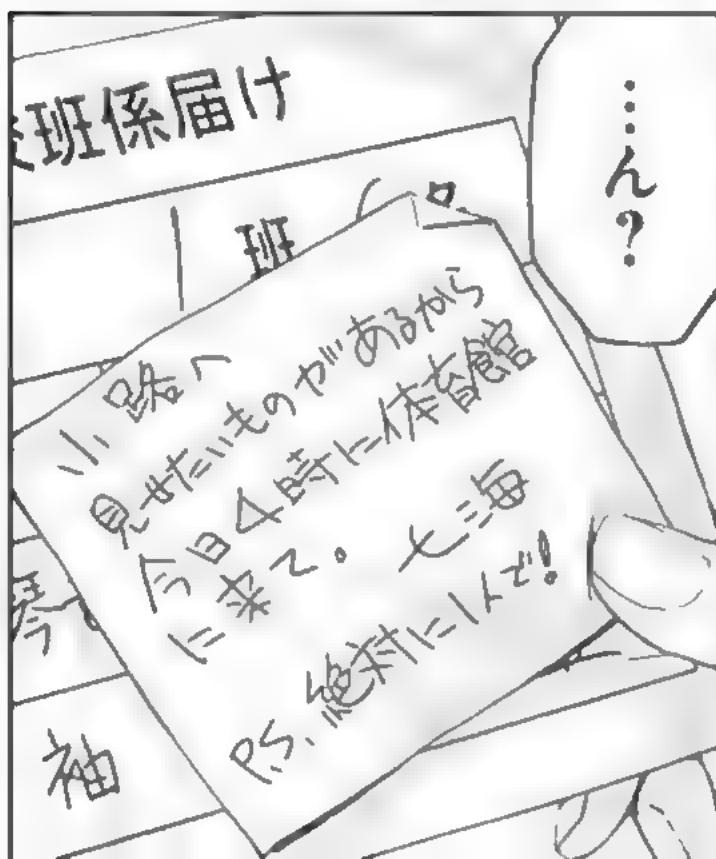 班係届け
班
…ん?
小路へ
見せたいものがあるから
今日4時に体育館
に来て。 七海
P.S. 絶対に1人で!
琴
袖